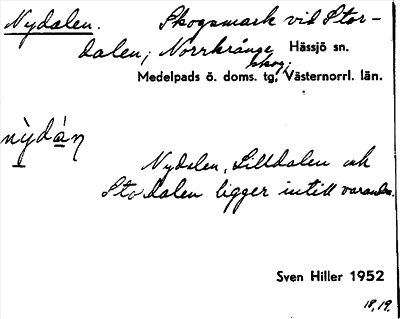 Nydalen. Skogsmark vid Stor-
dalen; Norrkrånge skog; Hässjö sn.
Medelpads ö. doms. tg, Västernorrl. län.
nỳdán
Nydalen, Lilldalen och
Stordalen ligger intill varandra.
Sven Hiller 1952
18,19.